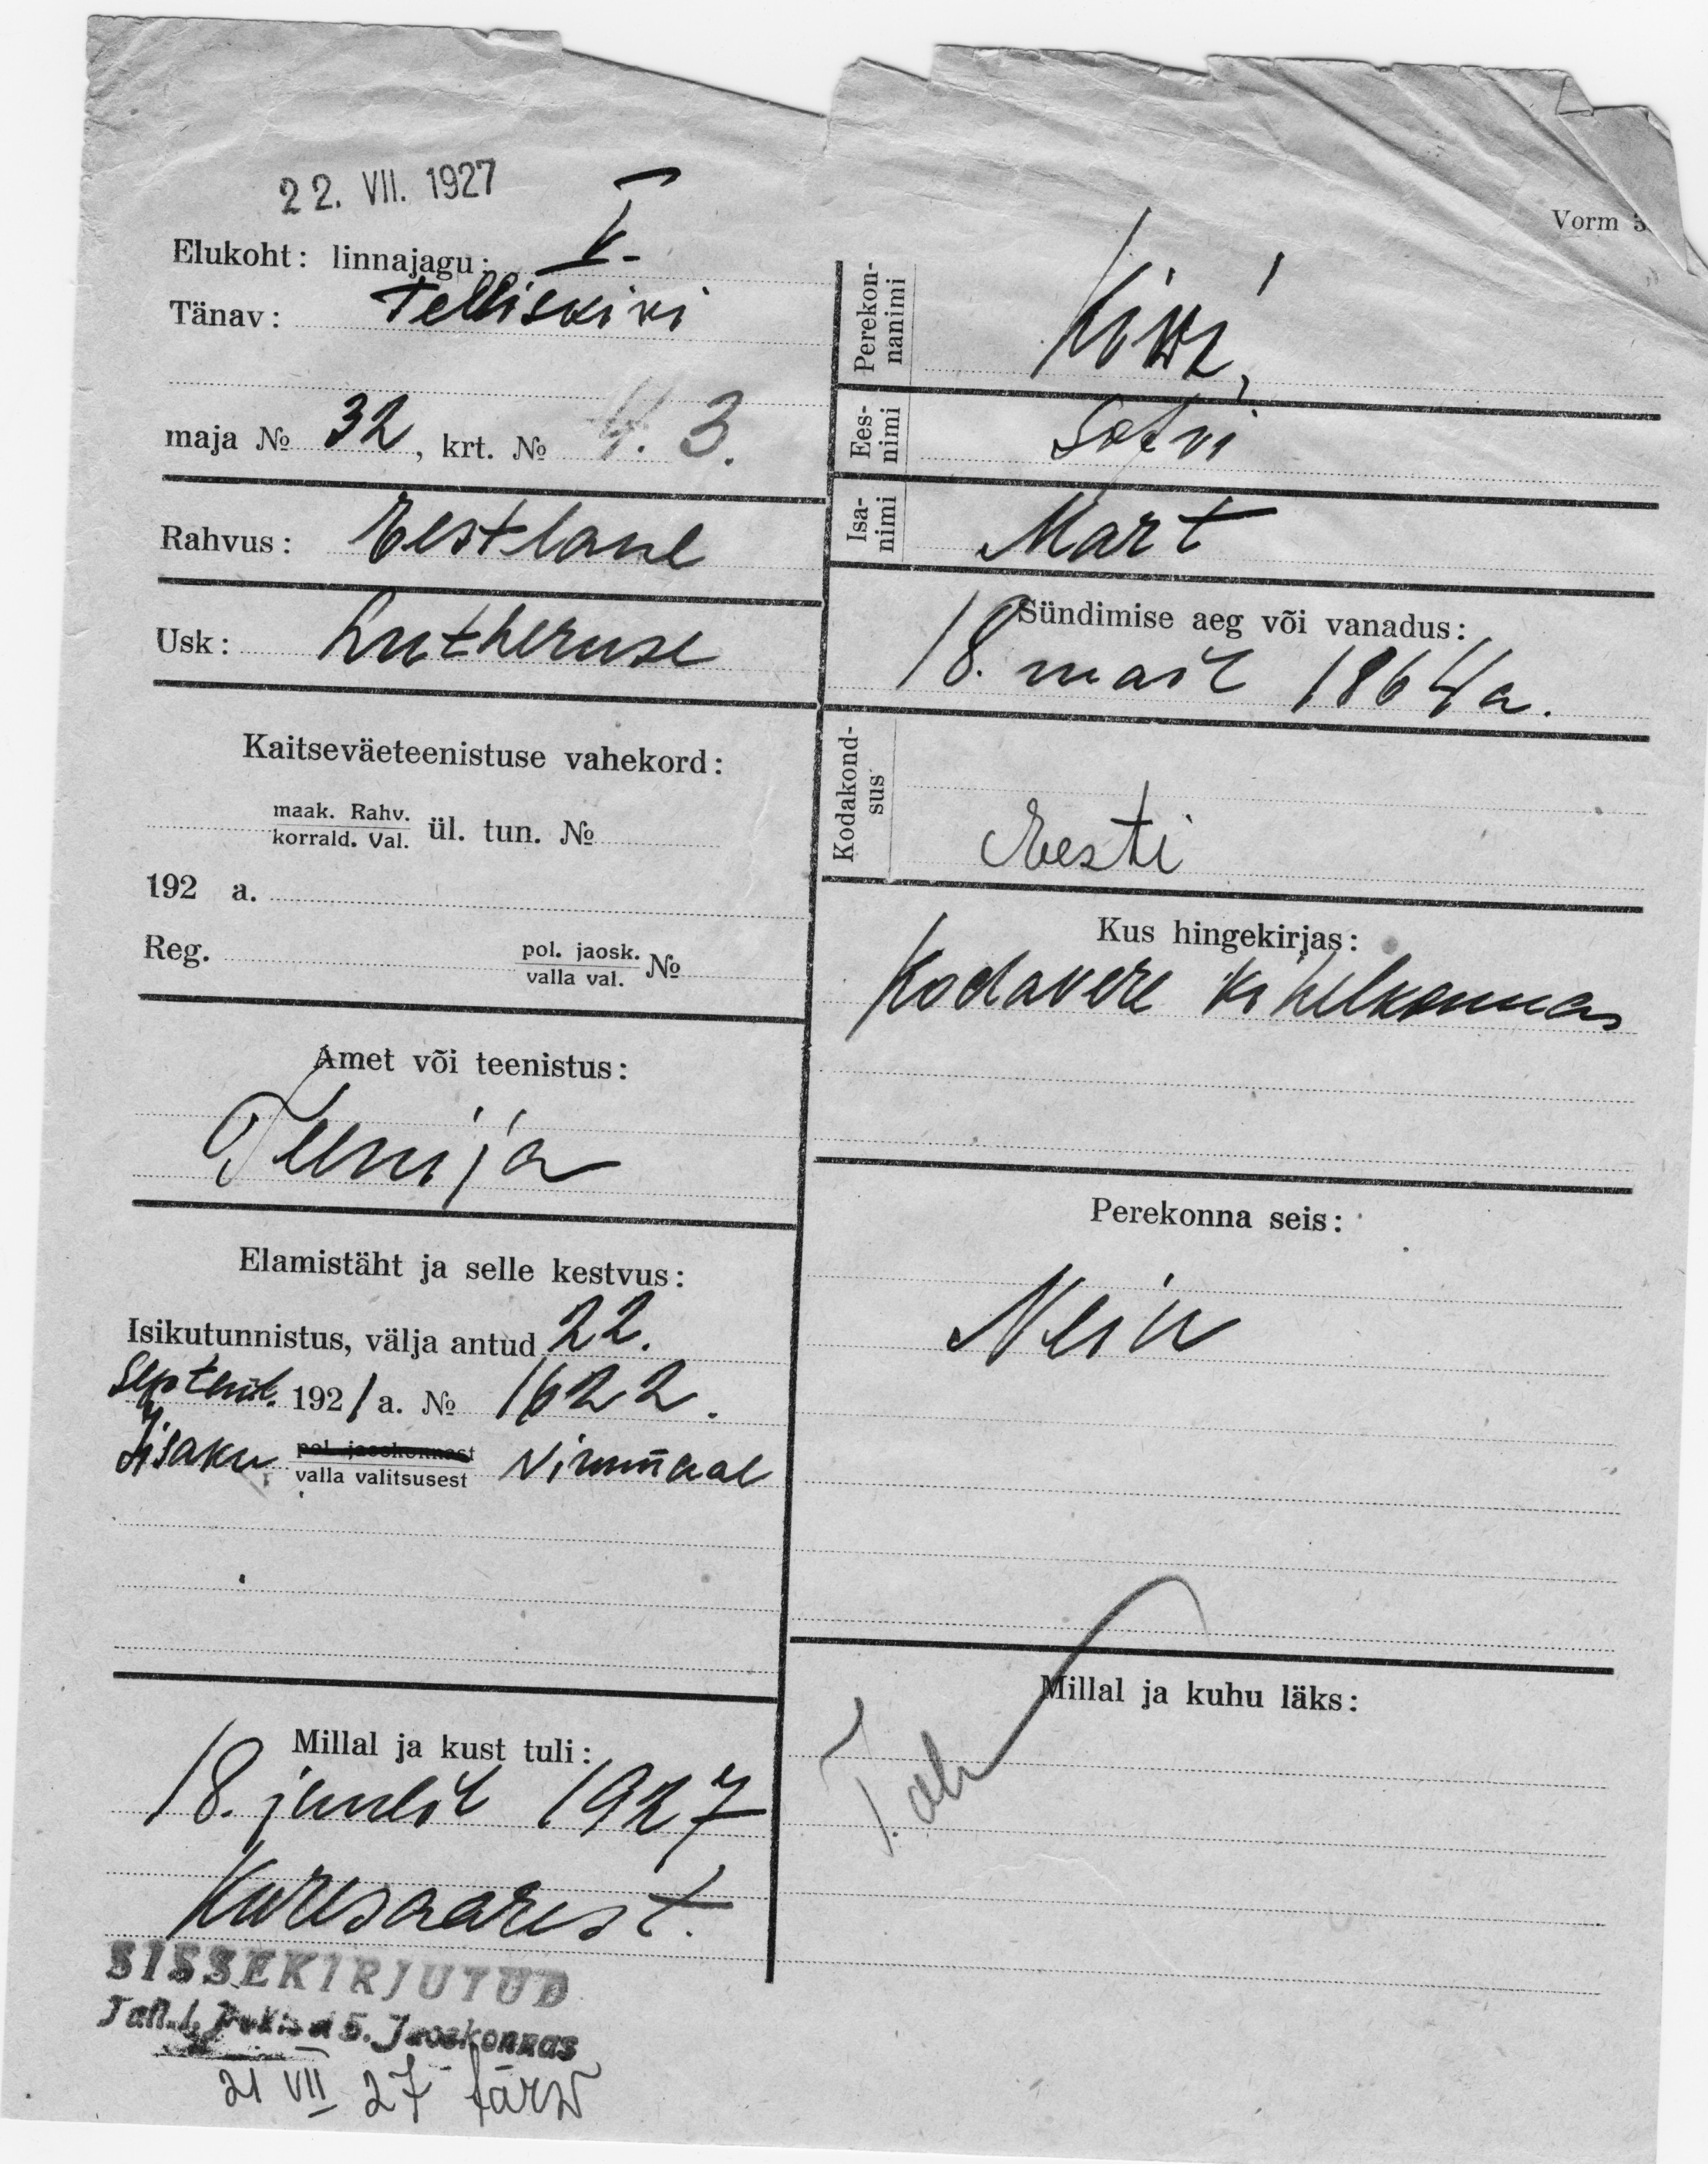 22. VII. 1927
Vorm 3
Elukoht: linnajagu: V-
Tänav: Telliskivi
maja № 32, krt. № 4. 3.
Rahvus: Eestlane
Usk: Lutheruse
Kaitseväeteenistuse vahekord:
maak. Rahv.
korrald. Val. ül. tun. №
192 a.
Reg. pol. jaosk.
valla val. №
Amet või teenistus:
Teenija
Elamistäht ja selle kestvus:
Isikutunnistus, välja antud 22.
Septemb. 1921 a. № 1622.
Iisaku pol. jaoskonnast
valla valitsusest Virumaal
Millal ja kust tuli:
18. juulil 1927
Kuresaarest.
SISSEKIRJUTUD
Tall. l. Politsei 5. Jaoskonnas
21 VII 27
Perekon-
nanimi Kiwi,
Ees-
nimi Sohvi
Isa-
nimi Mart
Sündimise aeg või vanadus:
18. mail 1864 a.
Kodakond-
sus Eesti
Kus hingekirjas:
Kodavere kihelkonnas
Perekonna seis:
Neiu
Millal ja kuhu läks: